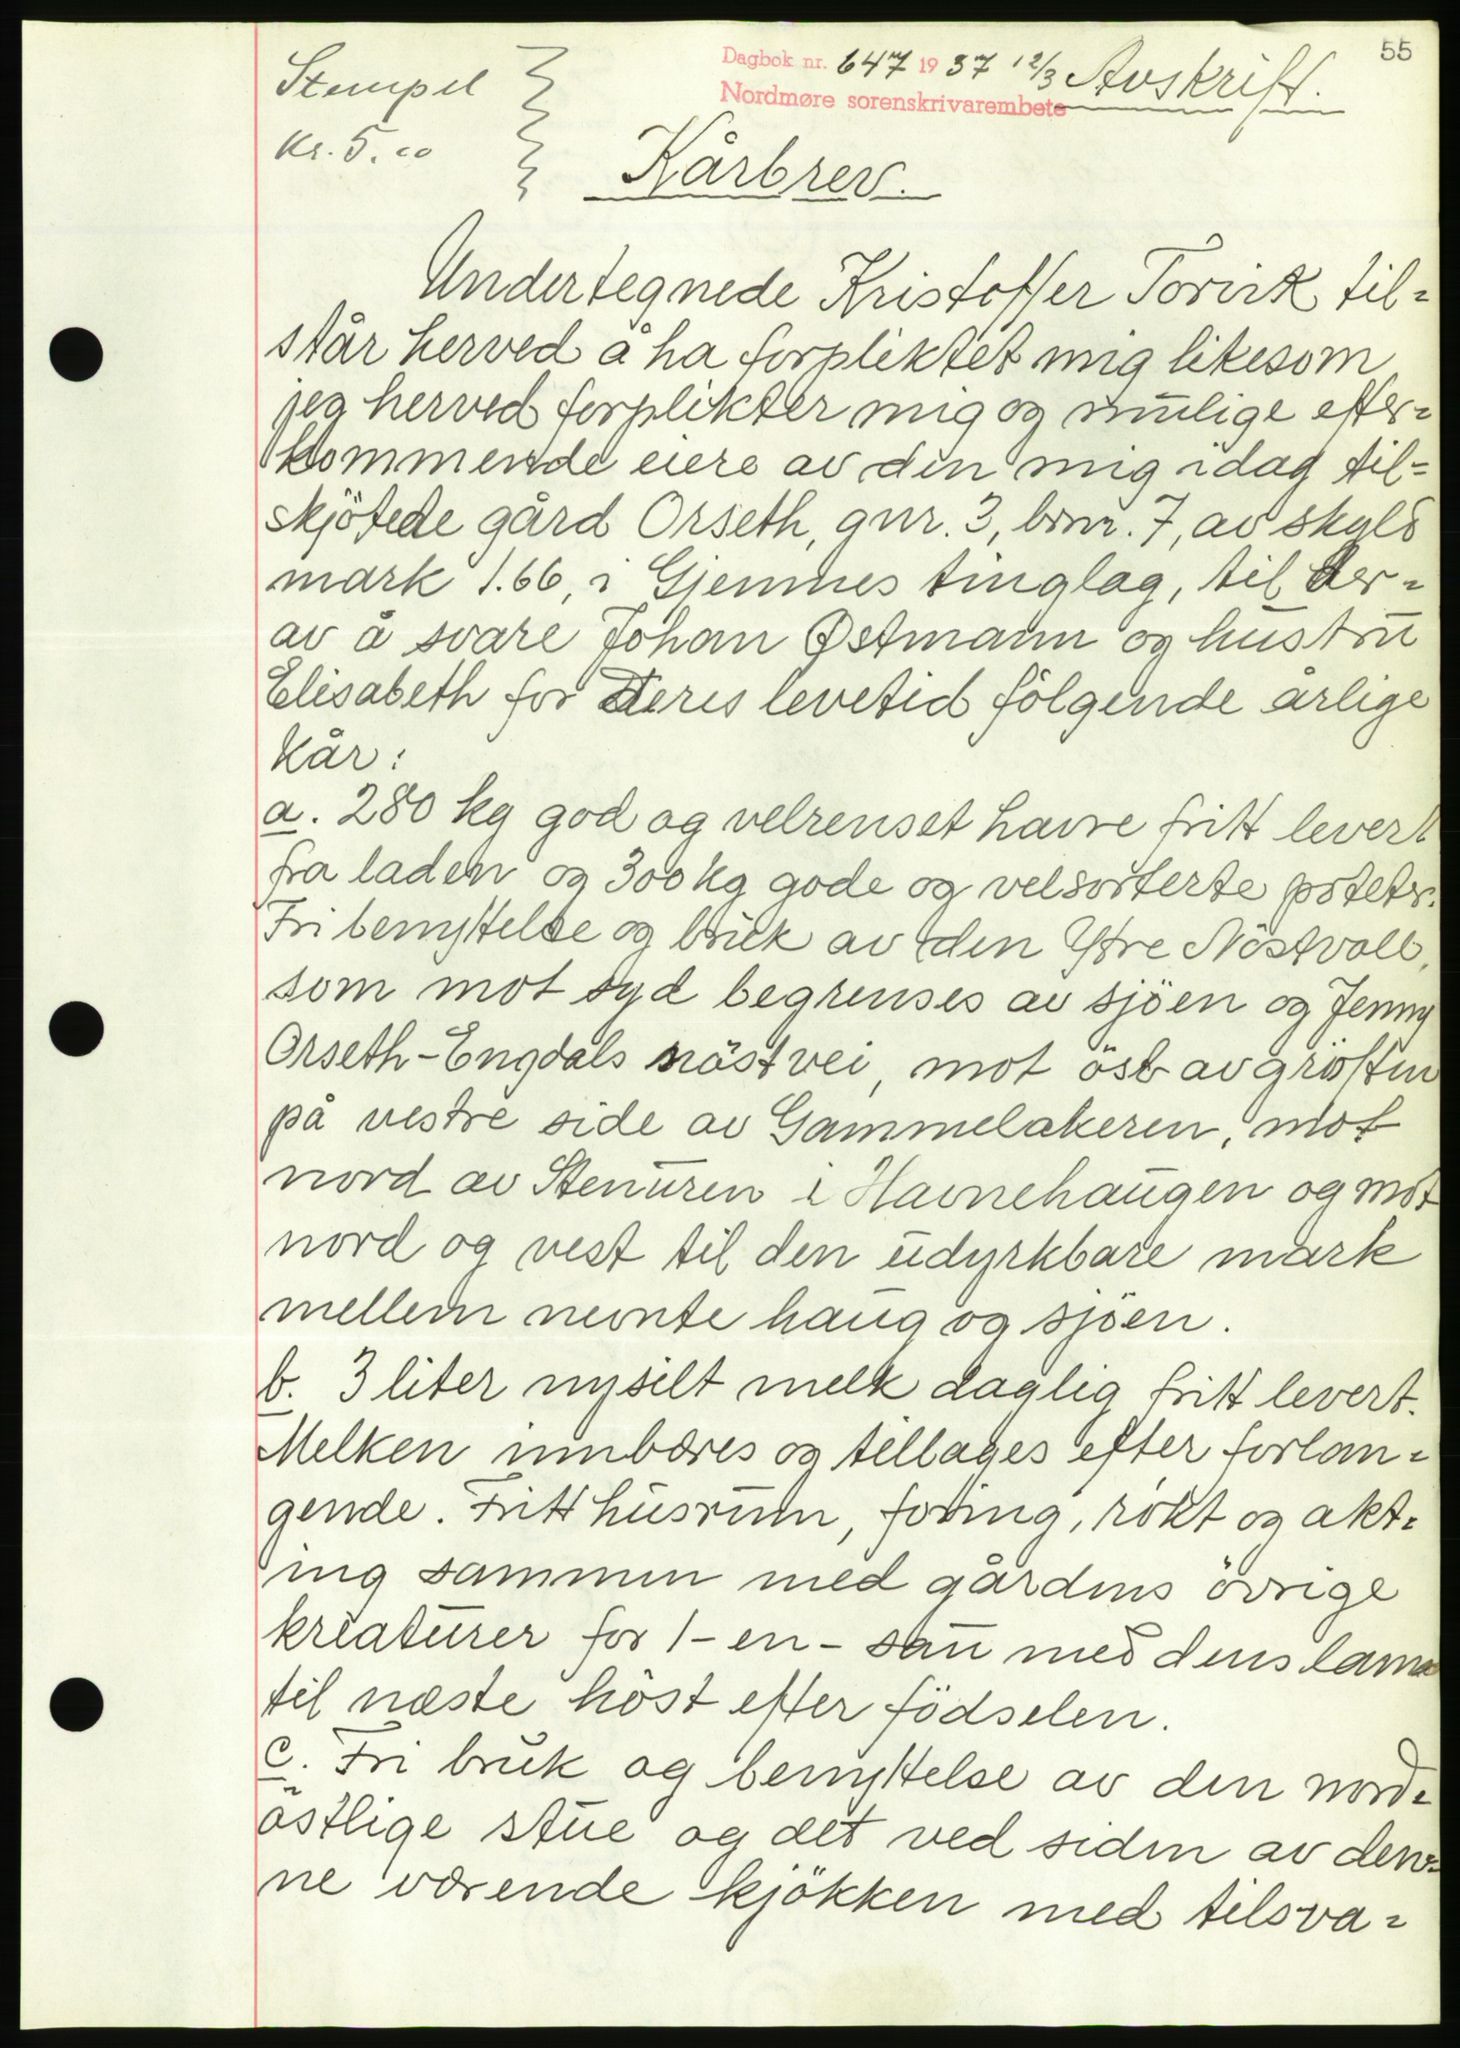 55
Dagbok nr. 647 1937 12/3 Avskrift.
Nordmøre sorenskrivarembete
Stempel
Kr. 5.00
Kårbrev.
Undertegnede Kristoffer Torvik til=
står herved å ha forpliktet mig likesom
jeg herved forplikter mig og mulige efter=
kommende eiere av den mig idag til=
skjötede gård Orseth, gnr. 3, brnr. 7, av skyld
mark 1.66, i Gjemnes tinglag, til der=
av å svare Johan Østmann og hustru
Elisabeth for deres levetid fölgende årlige
kår:
a. 280 kg god og velrenset havre fritt levert
fra laden og 300 kg gode og velsorterte poteter.
Fri benyttelse og bruk av den Ytre Nöstvoll,
som mot syd begrenses av sjöen og Jenny
Orseth-Engdals nöstvei, mot öst av gröften
på vestre side av Gammelakeren, mot
nord av Stenuren i Havnehaugen og mot
nord og vest til den udyrkbare mark
mellem nevnte haug og sjöen.
b. 3 liter nysilt melk daglig fritt levert.
Melken innbæres og tillages efter forlan=
gende. Fritt husrum, foring, rökt og akt=
ing sammen med gårdens övrige
kreaturer for 1 - en - sau med dens lam
til næste höst efter födselen.
c. Fri bruk og benyttelse av den nord=
östlige stue og det ved siden av den=
ne værende kjökken med tilsva=